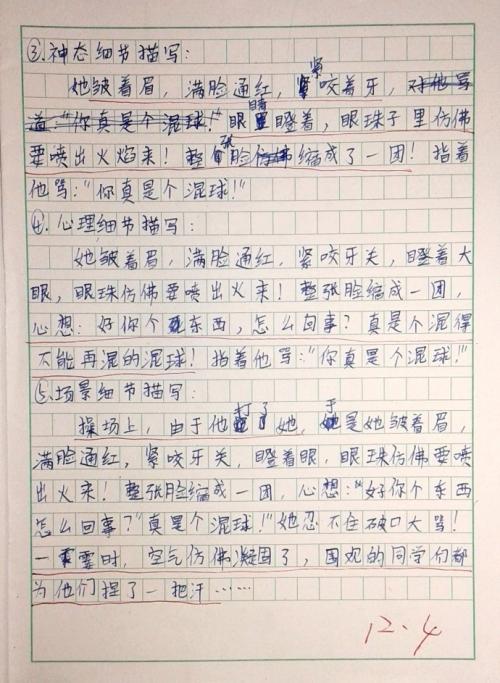 ③.神态细节描写:
她皱着眉，满脸通红，紧咬着牙，对他骂
道:"你真是个混球!"眼睛瞪着，眼珠子里仿佛
要喷出火焰来！整张脸仿佛缩成了一团！指着
他骂:"你真是个混球!"
④.心理细节描写:
她皱着眉，满脸通红，紧咬牙关，瞪着大
眼，眼珠仿佛要喷出火来！整张脸缩成一团，
心想:好你个东西，怎么回事？真是个混得
不能再混的混球！指着他骂:"你真是个混球!"
⑤.场景细节描写:
操场上，由于他打了她，于是她皱着眉，
满脸通红，紧咬牙关，瞪着眼，眼珠仿佛要喷
出火来！整张脸缩成一团，心想:"好你个东西
怎么回事?"真是个混球!"她忍不住破口大骂！
一霎时，空气仿佛凝固了，围观的同学们都
为他们捏了一把汗……
12.4